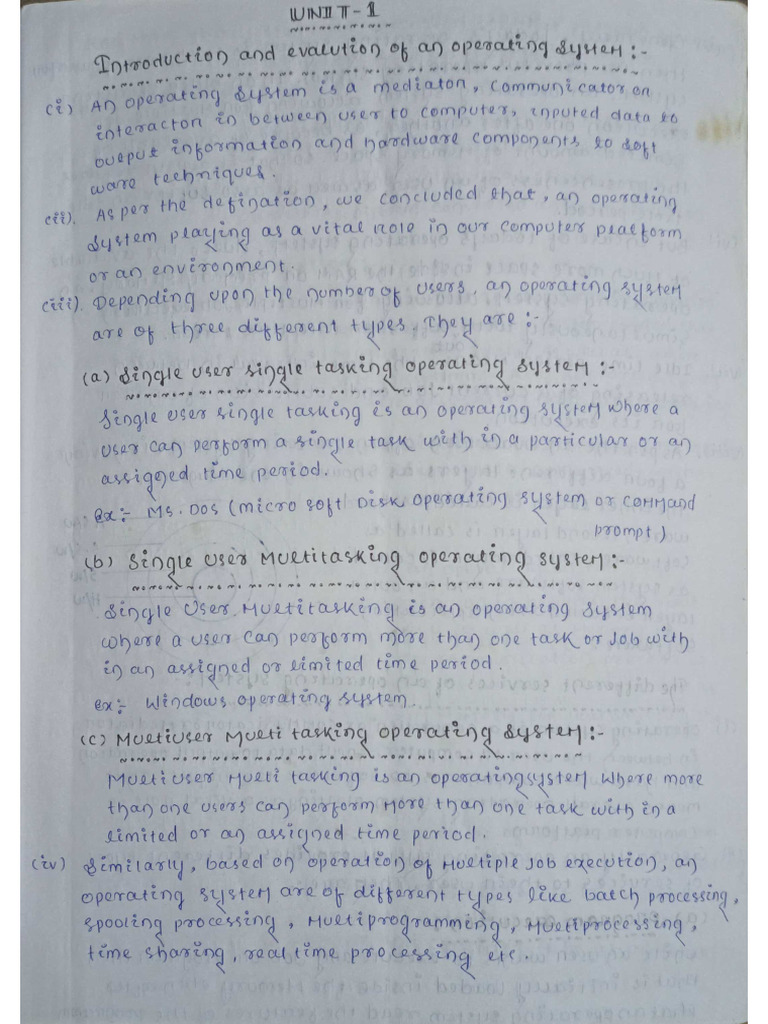 UNIT-1
Introduction and evalution of an operating system:-
(i) An operating system is a mediator, communicator or
interactor in between user to computer, inputed data to
output information and hardware components to soft
ware techniques.
(ii). As per the defination, we concluded that, an operating
system playing as a vital role in our computer platform
or an environment.
(iii). Depending upon the number of users, an operating system
are of three different types. They are :-
(a) Single user single tasking operating system :-
Single user single tasking is an operating system where a
user can perform a single task with in a particular or an
assigned time period.
ex:- Ms. Dos (micro soft Disk operating system or command
prompt)
(b) Single user Multitasking operating system :-
Single User Multitasking is an operating system
where a user can perform more than one task or job with
in an assigned or limited time period.
ex:- Windows operating system.
(c) Multiuser Multi tasking operating system :-
Multiuser Multi tasking is an operatingsystem where more
than one users can perform more than one task with in a
limited or an assigned time period.
(iv) Similarly, based on operation of multiple job execution, an
operating system are of different types like batch processing,
spooling processing, multiprogramming, multiprocessing,
time sharing, real time processing etc.